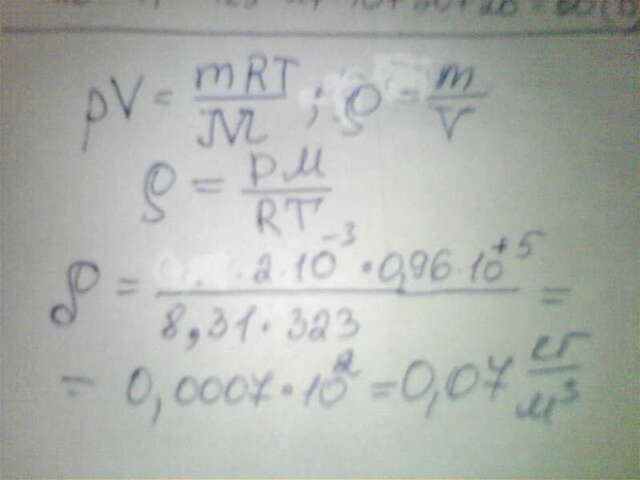 pV = mRT/M ; ρ = m/V
ρ = pM/RT
ρ = 2·10⁻³·0,96·10⁺⁵/8,31·323 =
= 0,0007·10² = 0,07 кг/м³